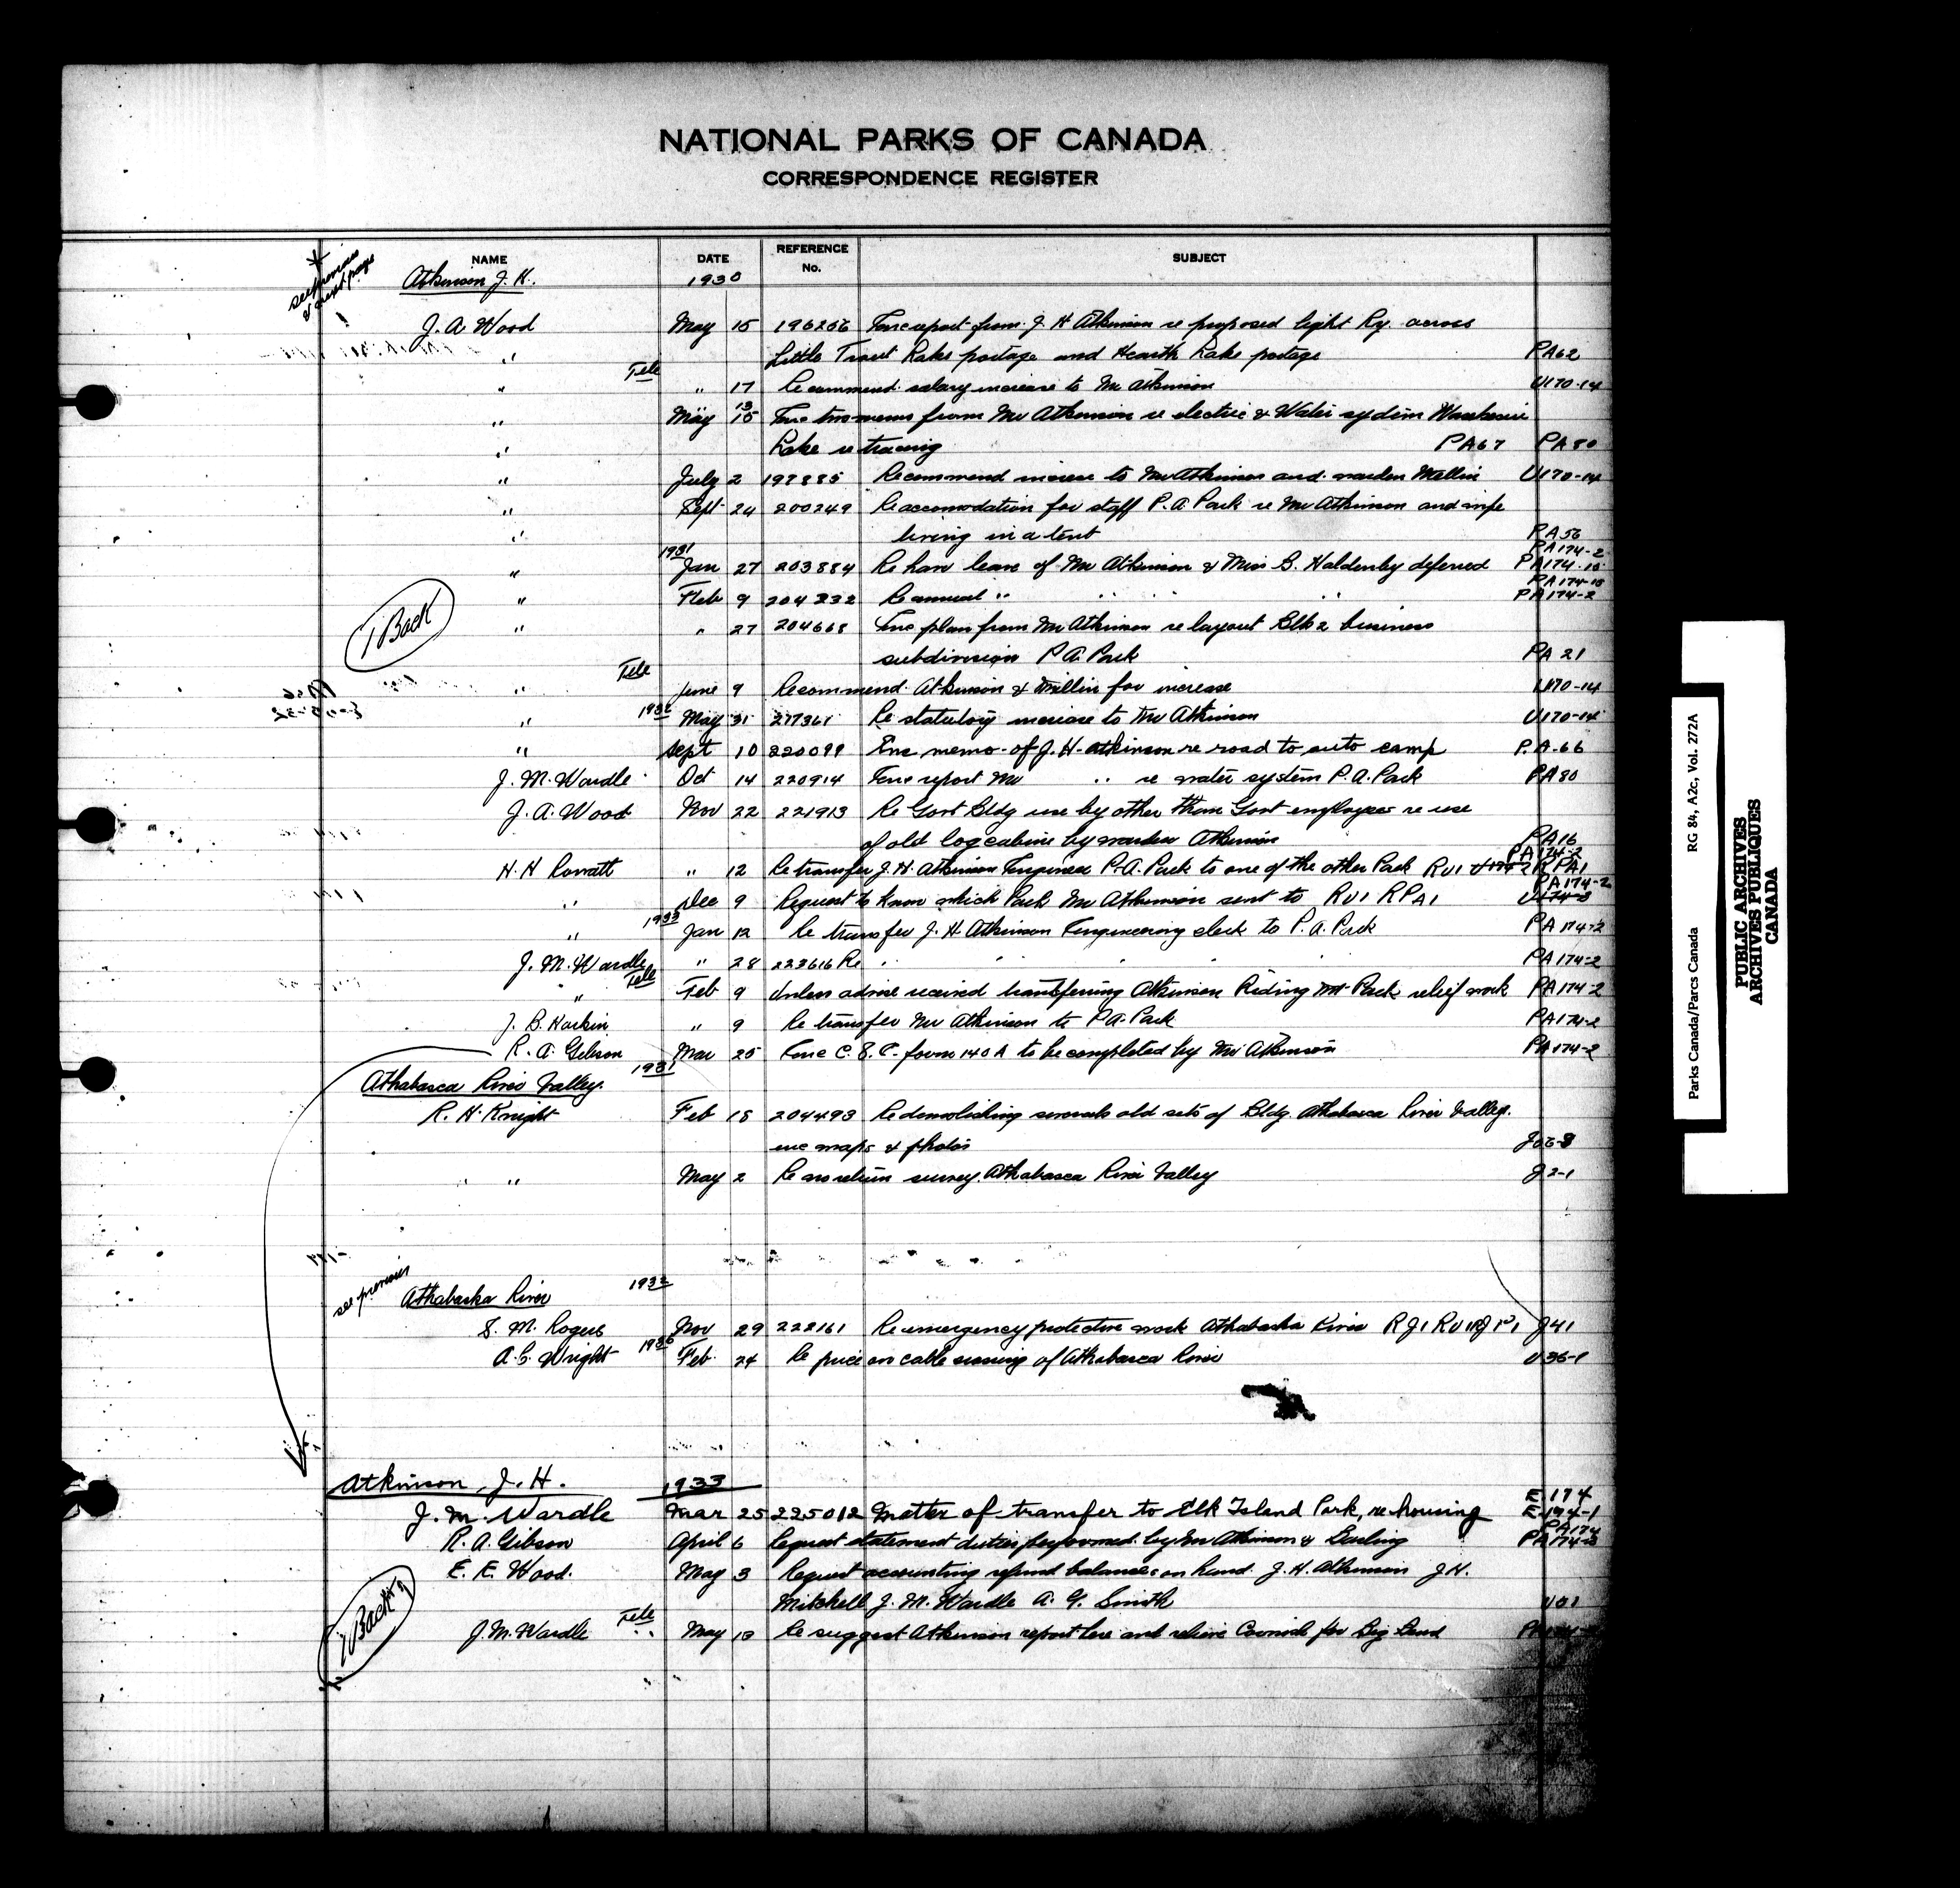 NATIONAL PARKS OF CANADA
CORRESPONDENCE REGISTER
NAME DATE REFERENCE No. SUBJECT
see previous & next page
Atkinson J. H. 1930
J. A. Wood May 15 196256 Enc report from J. H Atkinson re proposed light Ry. across
" Little Trout Lake portage and Heart Lake portage PA62
" Tele " 17 Recommend salary increase to Mr Atkinson U170-14
" May 13 15 Enc two memos from Mr Atkinson re electric & Water system Waskesiu
" Lake re tracing PA67 PA80
" July 2 197885 Recommend increase to Mr Atkinson and warden Millin U170-14
" Sept 24 200249 Re accomodation for staff P.A. Park re Mr Atkinson and wife
" living in a tent PA56
1931 PA174-2
" Jan 27 203884 Re have leave of Mr Atkinson & Miss G. Haldenby deferred PA174-15
PA174-15
" Feb 9 204332 Re annual " " " " " PA174-2
1 Back
" " 27 204668 Enc plan from Mr Atkinson re layout Blk 2 business
subdivision P A. Park PA 21
" Tele June 9 Recommend Atkinson & Millin for increase U170-14
" 1932 May 31 217361 Re statutory increase to Mr Atkinson U170-14
" Sept 10 220099 Enc memo of J. H. Atkinson re road to auto camp P.A-66
J. M. Wardle Oct 14 220914 Enc report Mr " re water system P.A. Park PA80
J. A. Wood Nov 22 221913 Re Govt Bldg use by other than Govt employees re use
of old log cabins by warden Atkinson PA16
PA174-2
H. H Rowatt " 12 Re transfer J. H. Atkinson Engineer P.A. Park to one of the other Park RU1 U174-2 RPA1
PA174-2
" Dec 9 Request to know which Park Mr Atkinson sent to RU1 RPA1 U174-3
" 1933 Jan 12 Re transfer J. H Atkinson Engineering clerk to P.A. Park PA174-2
J. M. Wardle " 28 223616 Re " " " " PA174-2
" Tele Feb 9 Unless advise received transferring Atkinson Riding Mt Park relief work PA174-2
J. B. Harkin " 9 Re transfer Mr Atkinson to P.A. Park PA174-2
R. A. Gibson Mar 25 Enc C. S. C. form 140A to be completed by Mr Atkinson PA174-2
Athabasca River Valley. 1931
R. H. Knight Feb 18 204493 Re demolishing several old sets of Bldg. Athabasca River Valley.
enc maps & photos J56-3
" " May 2 Re no return survey Athabasca River Valley J2-1
see previous
Athabaska River 1932
S. M. Rogers Nov 29 222161 Re emergency protective work Athabaska River RJ1 RU1 J41
A. C. Wright 1936 Feb. 24 Re price on cable crossing of Athabasca River U36-1
Atkinson, J. H. 1933
E174
J. M. Wardle Mar 25 225012 Matter of transfer to Elk Island Park, re housing E174-1
PA174
R. A. Gibson April 6 Request statement duties performed by Mr Atkinson & Darling PA174-3
E. E. Wood. May 3 Request accounting refund balances on hand J. H. Atkinson J H.
Mitchell J. M. Wardle A. G. Smith U01
1 Back
J. M. Wardle Tele " May 13 Re suggest Atkinson report here and relieve Cornish for Big Bend
RG 84, A2c, Vol. 272A
Parks Canada/Parcs Canada
PUBLIC ARCHIVES
ARCHIVES PUBLIQUES
CANADA